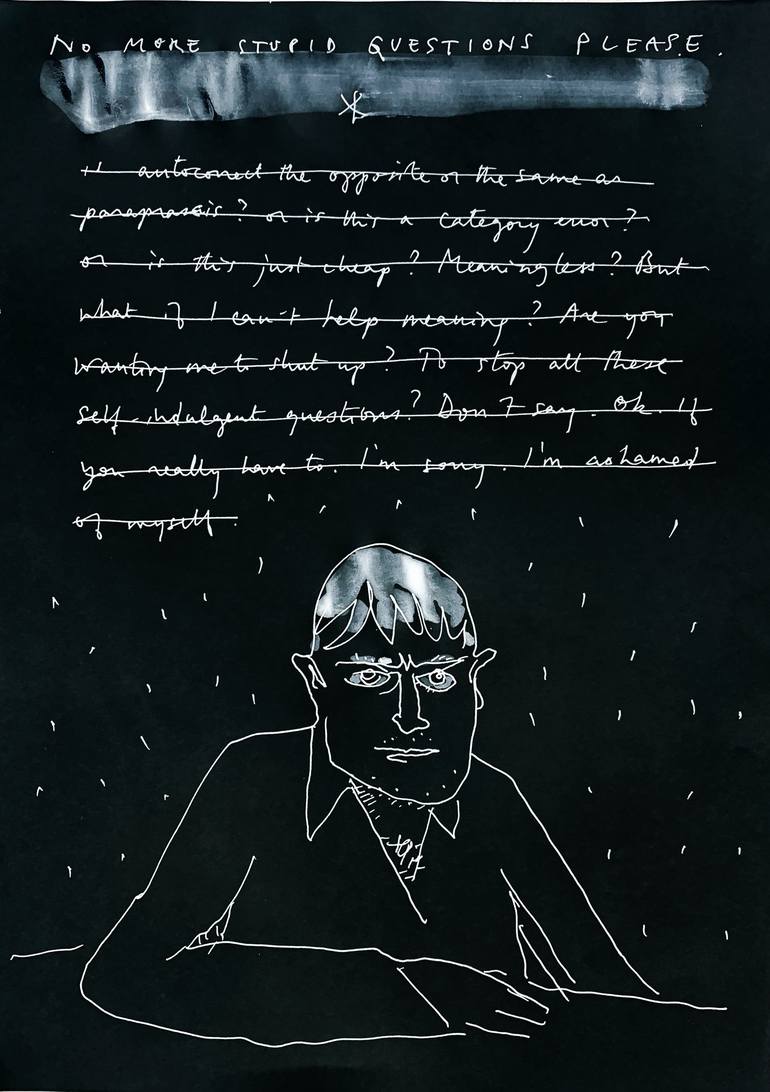 NO MORE STUPID QUESTIONS PLEASE.
is autocorrect the opposite or the same as
paraphrasis? or is this a category error?
or is this just cheap? Meaningless? But
what if I can't help meaning? Are you
wanting me to shut up? To stop all these
self-indulgent questions? Don't say. Ok. If
you really have to. I'm sorry. I'm ashamed
of myself.